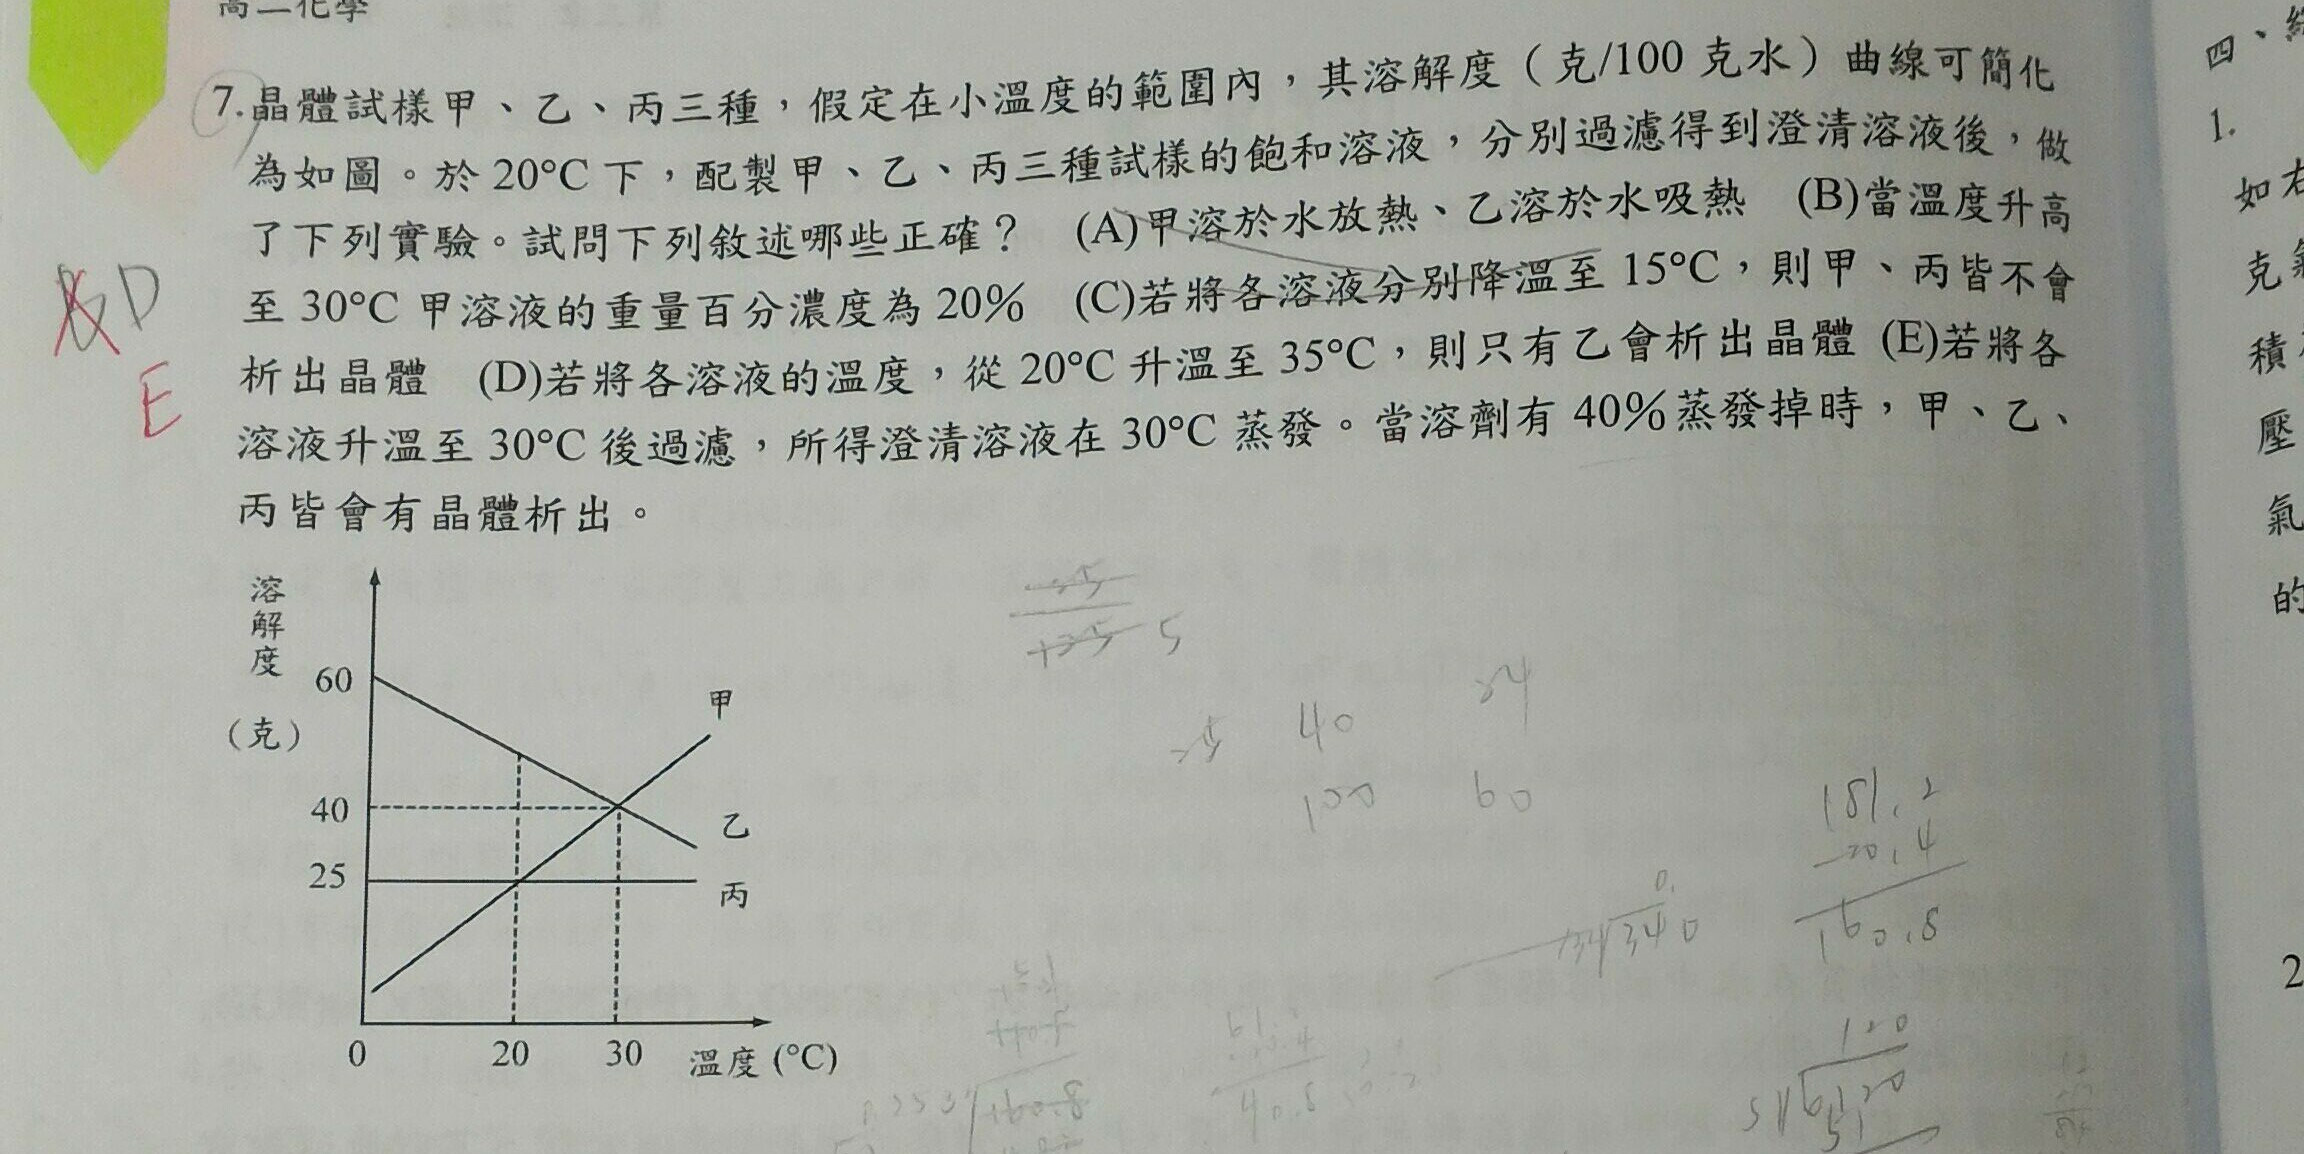 高二化學
7.晶體試樣甲、乙、丙三種，假定在小溫度的範圍內，其溶解度（克/100 克水）曲線可簡化
為如圖。於 20°C 下，配製甲、乙、丙三種試樣的飽和溶液，分別過濾得到澄清溶液後，做
了下列實驗。試問下列敘述哪些正確？ (A)甲溶於水放熱、乙溶於水吸熱 (B)當溫度升高
至 30°C 甲溶液的重量百分濃度為 20% (C)若將各溶液分別降溫至 15°C，則甲、丙皆不會
析出晶體 (D)若將各溶液的溫度，從 20°C 升溫至 35°C，則只有乙會析出晶體 (E)若將各
溶液升溫至 30°C 後過濾，所得澄清溶液在 30°C 蒸發。當溶劑有 40%蒸發掉時，甲、乙、
丙皆會有晶體析出。
D
E
溶解度
（克）
60
40
25
甲
乙
丙
0 20 30 溫度 (°C)
5
40
100
24
60
181.2
20.4
160.8
340
120
四、
1.
如右
克
積
壓
氣
的
2